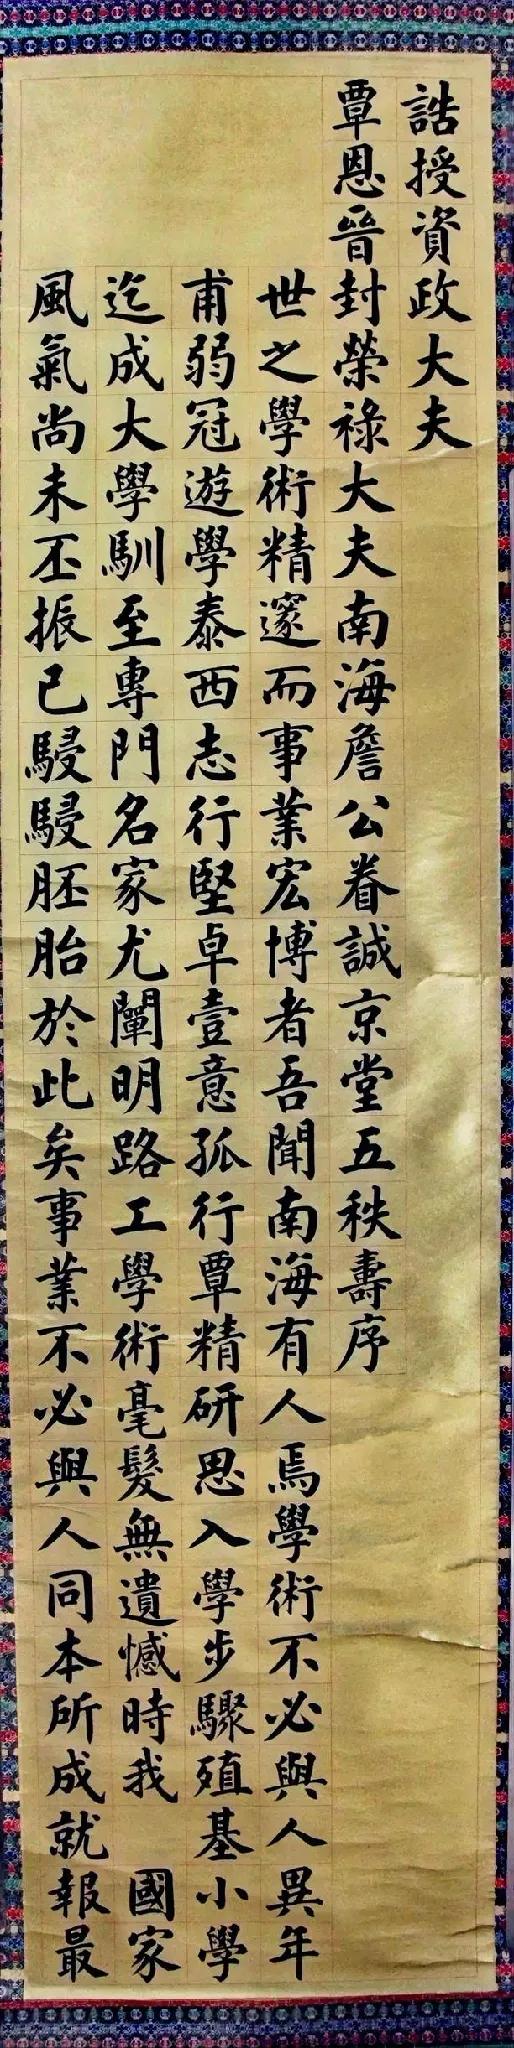 誥授資政大夫
覃恩晉封榮祿大夫南海詹公眷誠京堂五秩壽序
世之學術精邃而事業宏博者吾聞南海有人焉學術不必與人異年
甫弱冠遊學泰西志行堅卓壹意孤行覃精研思入學步驟殖基小學
迄成大學馴至專門名家尤闡明路工學術毫髮無遺憾時我 國家
風氣尚未丕振已駸駸胚胎於此矣事業不必與人同本所成就報最